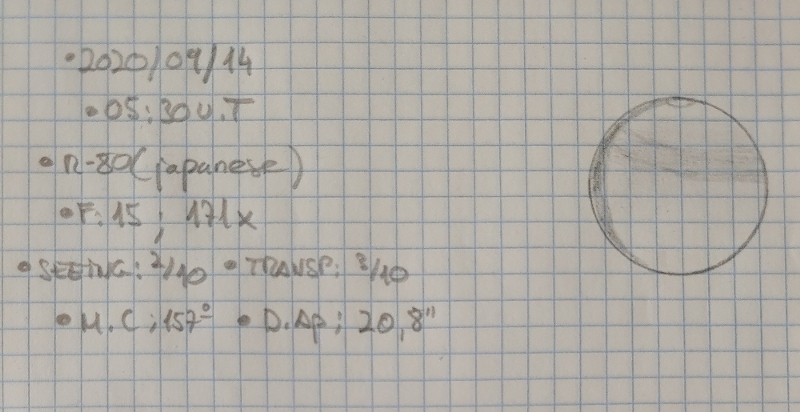 •2020/09/14
•05:30 U.T
•R-80(japanese)
•F:15; 171x
•SEEING: 7/10 •TRANSP: 8/10
•M.C;157º •D.Ap; 20,8"